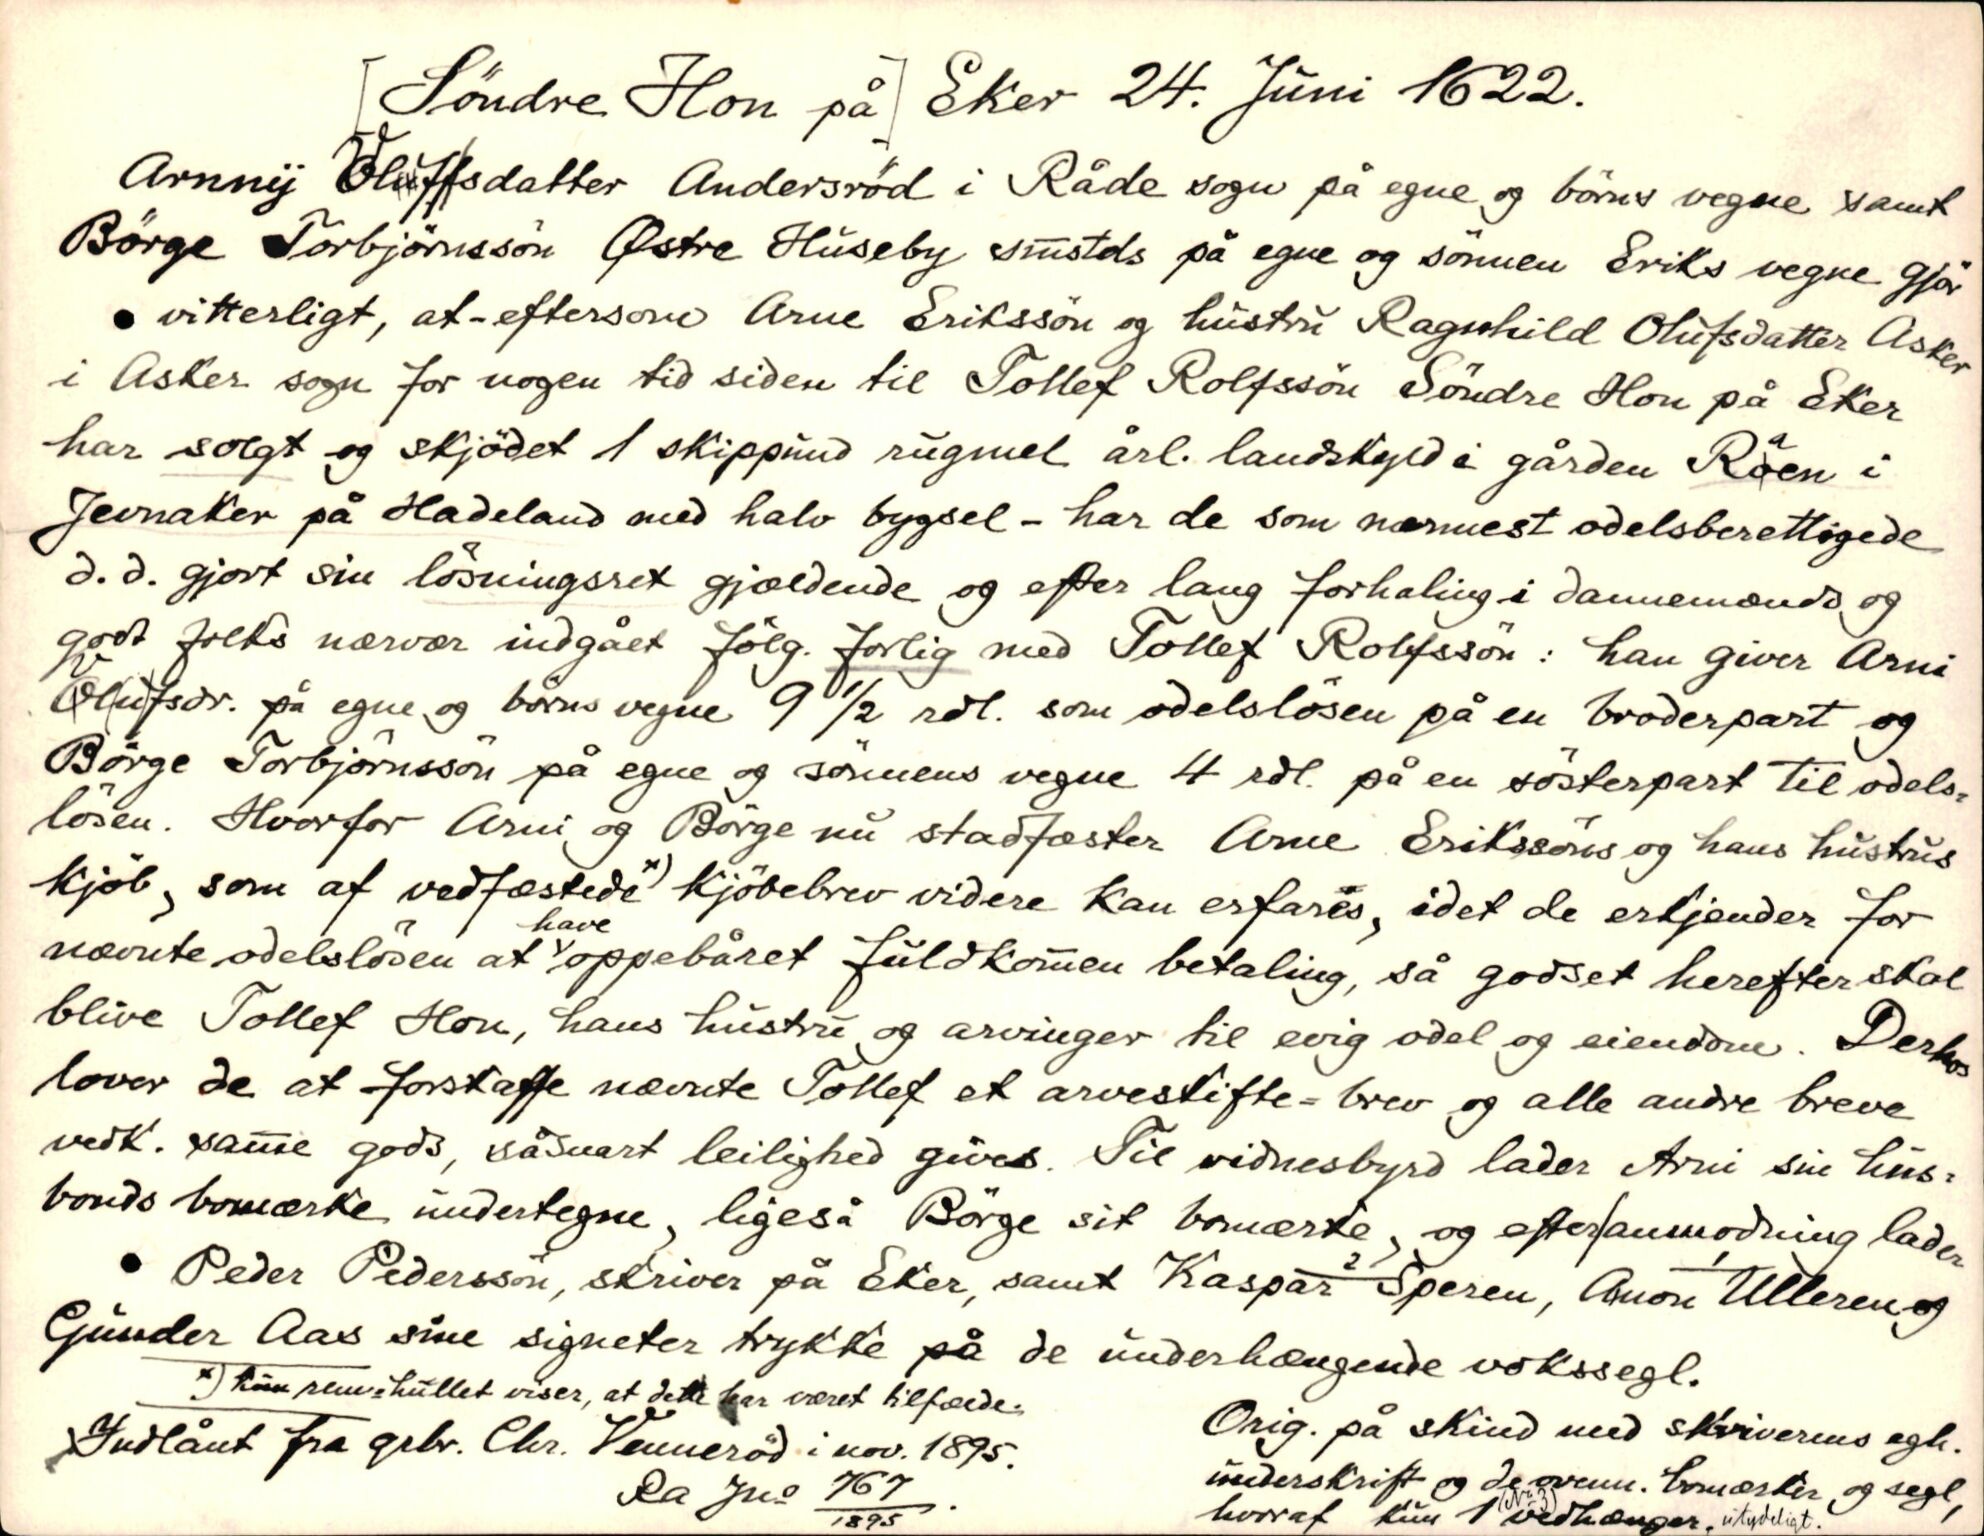 [Söndre Hon på] Eker 24. Juni 1622.
Arnnij Oluffsdatter Andersröd i Råde sogn på egne og börns vegne samt
Börge Torbjörnssön Østre Huseby smstds på egne og sönnen Eriks vegne gjör
vitterligt, at - eftersom Arne Erikssön og hustru Ragnhild Olufsdatter Asker
i Asker sogn for nogen tid siden til Tollef Rolfssön Söndre Hon på Eker
har solgt og skjödet 1 skippund rugmel årl. landskyld i gården Råen i
Jevnaker på Hadeland med halv bygsel - har de som nærmest odelsberettigede
d. d. gjort sin lösningsret gjældende og efter lang forhaling i dannemænds og
godt folks nærvær indgået fölg. forlig med Tollef Rolfssön: han giver Arni
Olufsdr. på egne og börns vegne 9 1/2 rdl. som odelslösen på en broderpart og
Börge Torbjörnssön på egne og sönnens vegne 4 rdl. på en sösterpart til odels=
lösen. Hvorfor Arni og Börge nu stadfæster Arne Erikssöns og hans hustrus
kjöb, som af vedfæstede x) kjöbebrev videre kan erfares, idet de erkjender for
nævnte odelslösen at have oppebåret fuldkom̄en betaling, så godset herefter skal
blive Tollef Hon, hans hustru og arvinger til evig odel og eiendom. Derhos
lover de at forskaffe nævnte Tollef et arveskifte=brev og alle andre breve
vedk. sam̄e gods, såsnart leilighed gives. Til vidnesbyrd lader Arni sin hus=
bonds bomærke undertegne, ligeså Börge sit bomærke, og efter anmodning lader
Peder Pederssön, skriver på Eker, samt Kaspar 2 Speren, Amon 1 Ulleren og
Gunder Aas sine signeter trykke på de underhængende vokssegl.
x) kun rem=hullet viser, at dette har været tilfælde.
Indlånt fra grbr. Chr. Venneröd i nov. 1895.
Ra Jno 767/1895.
Orig. på skind med skriverens egh.
underskrift og de ovenn. bomærker og segl,
hvoraf kun 1 (No 3) vedhænger, utydeligt.